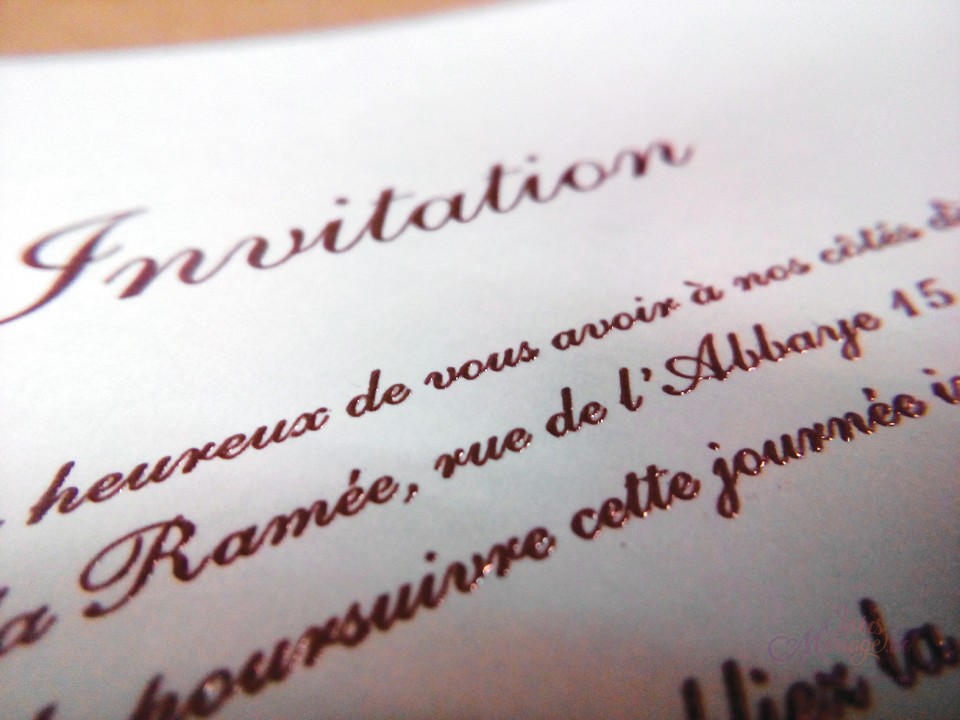 Invitation
heureux de vous avoir à nos côtés
la Ramée, rue de l'Abbaye 15
poursuivre cette journée
la